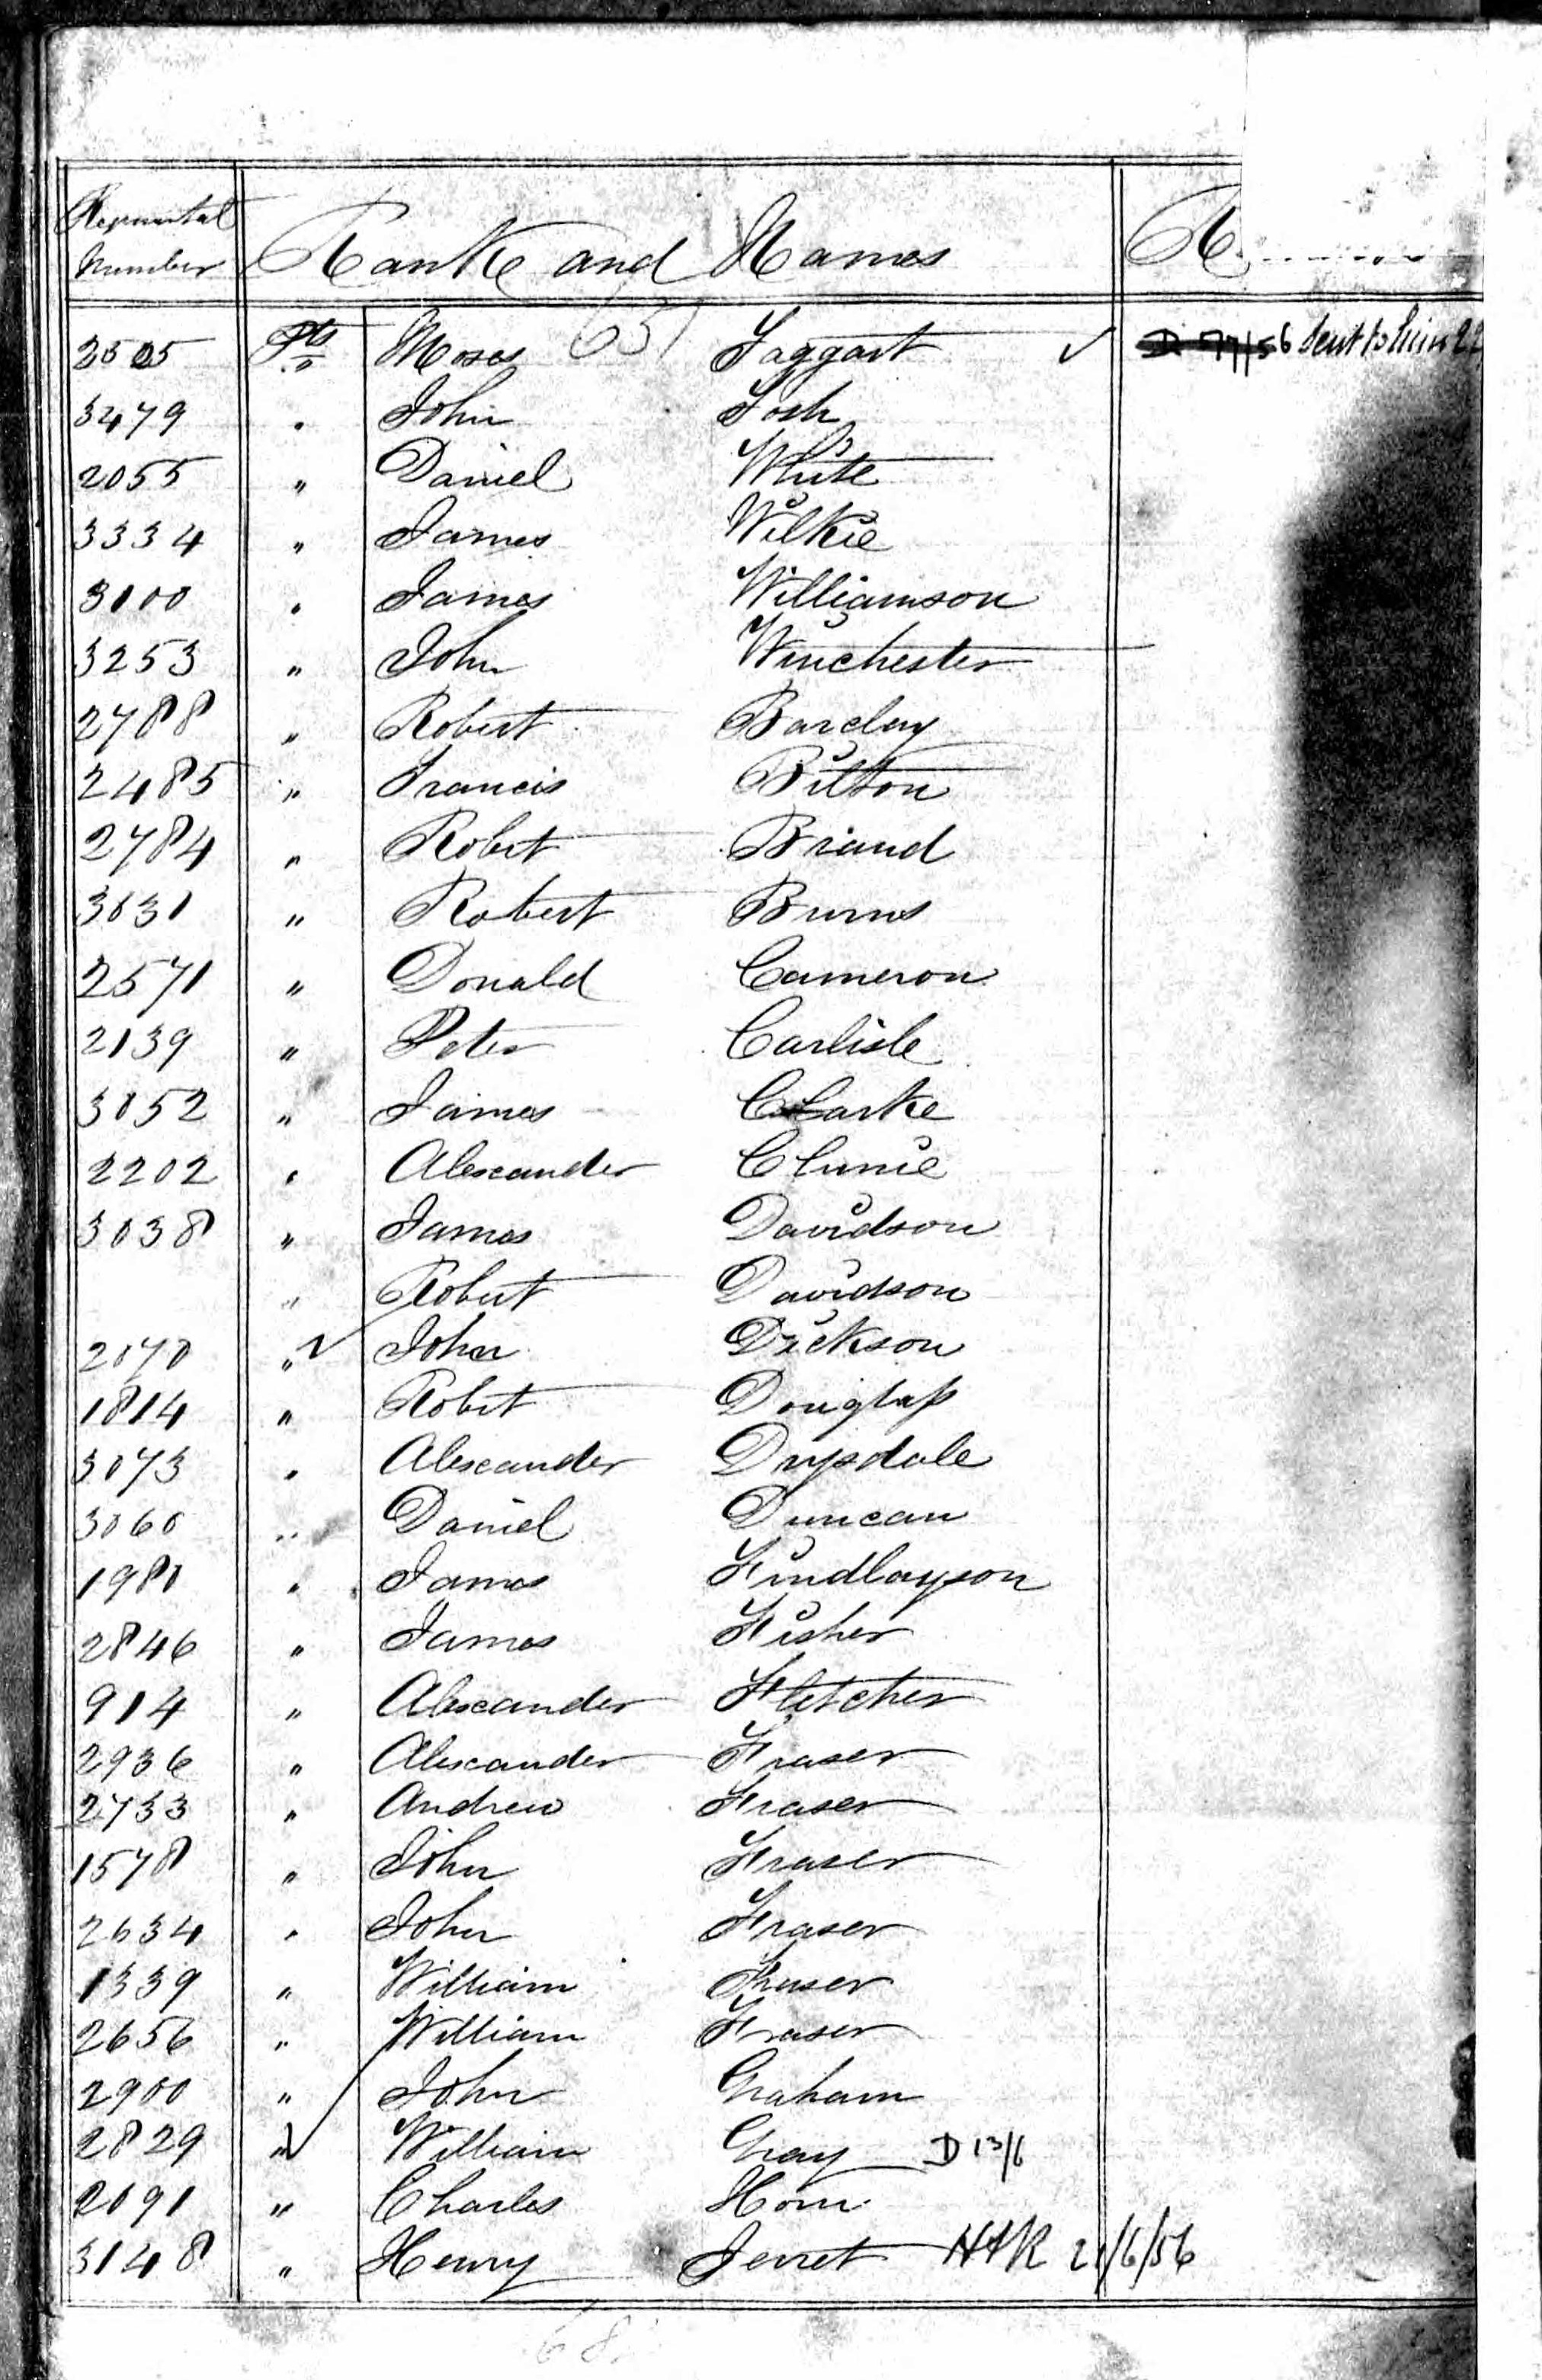 Regimental
Number Rank and Names R
2505 Pte Moses 651 Taggart ✓ D 77/56 Sent to him 22
3479 " John Tosh
2055 " Daniel White
3334 " James Wilkie
3100 " James Williamson
3253 " John Winchester
2788 " Robert Barclay
2485 " Francis Bilton
2784 " Robert Briand
3031 " Robert Burns
2571 " Donald Cameron
2139 " Peter Carlisle
3052 " James Clarke
2202 " Alexander Clunie
3038 " James Davidson
" Robert Davidson
2070 " ✓ John Dickson
1814 " Robert Douglass
3073 " Alexander Drysdale
3060 " Daniel Duncan
1980 " James Findlayson
2846 " James Fisher
914 " Alexander Fletcher
2936 " Alexander Fraser
2733 " Andrew Fraser
1578 " John Fraser
2634 " John Fraser
1339 " William Fraser
2656 " William Fraser
2900 " John Graham
2829 " ✓ William Gray D 13/6
2091 " Charles Horn
3148 " Henry Jerret 21/6/56